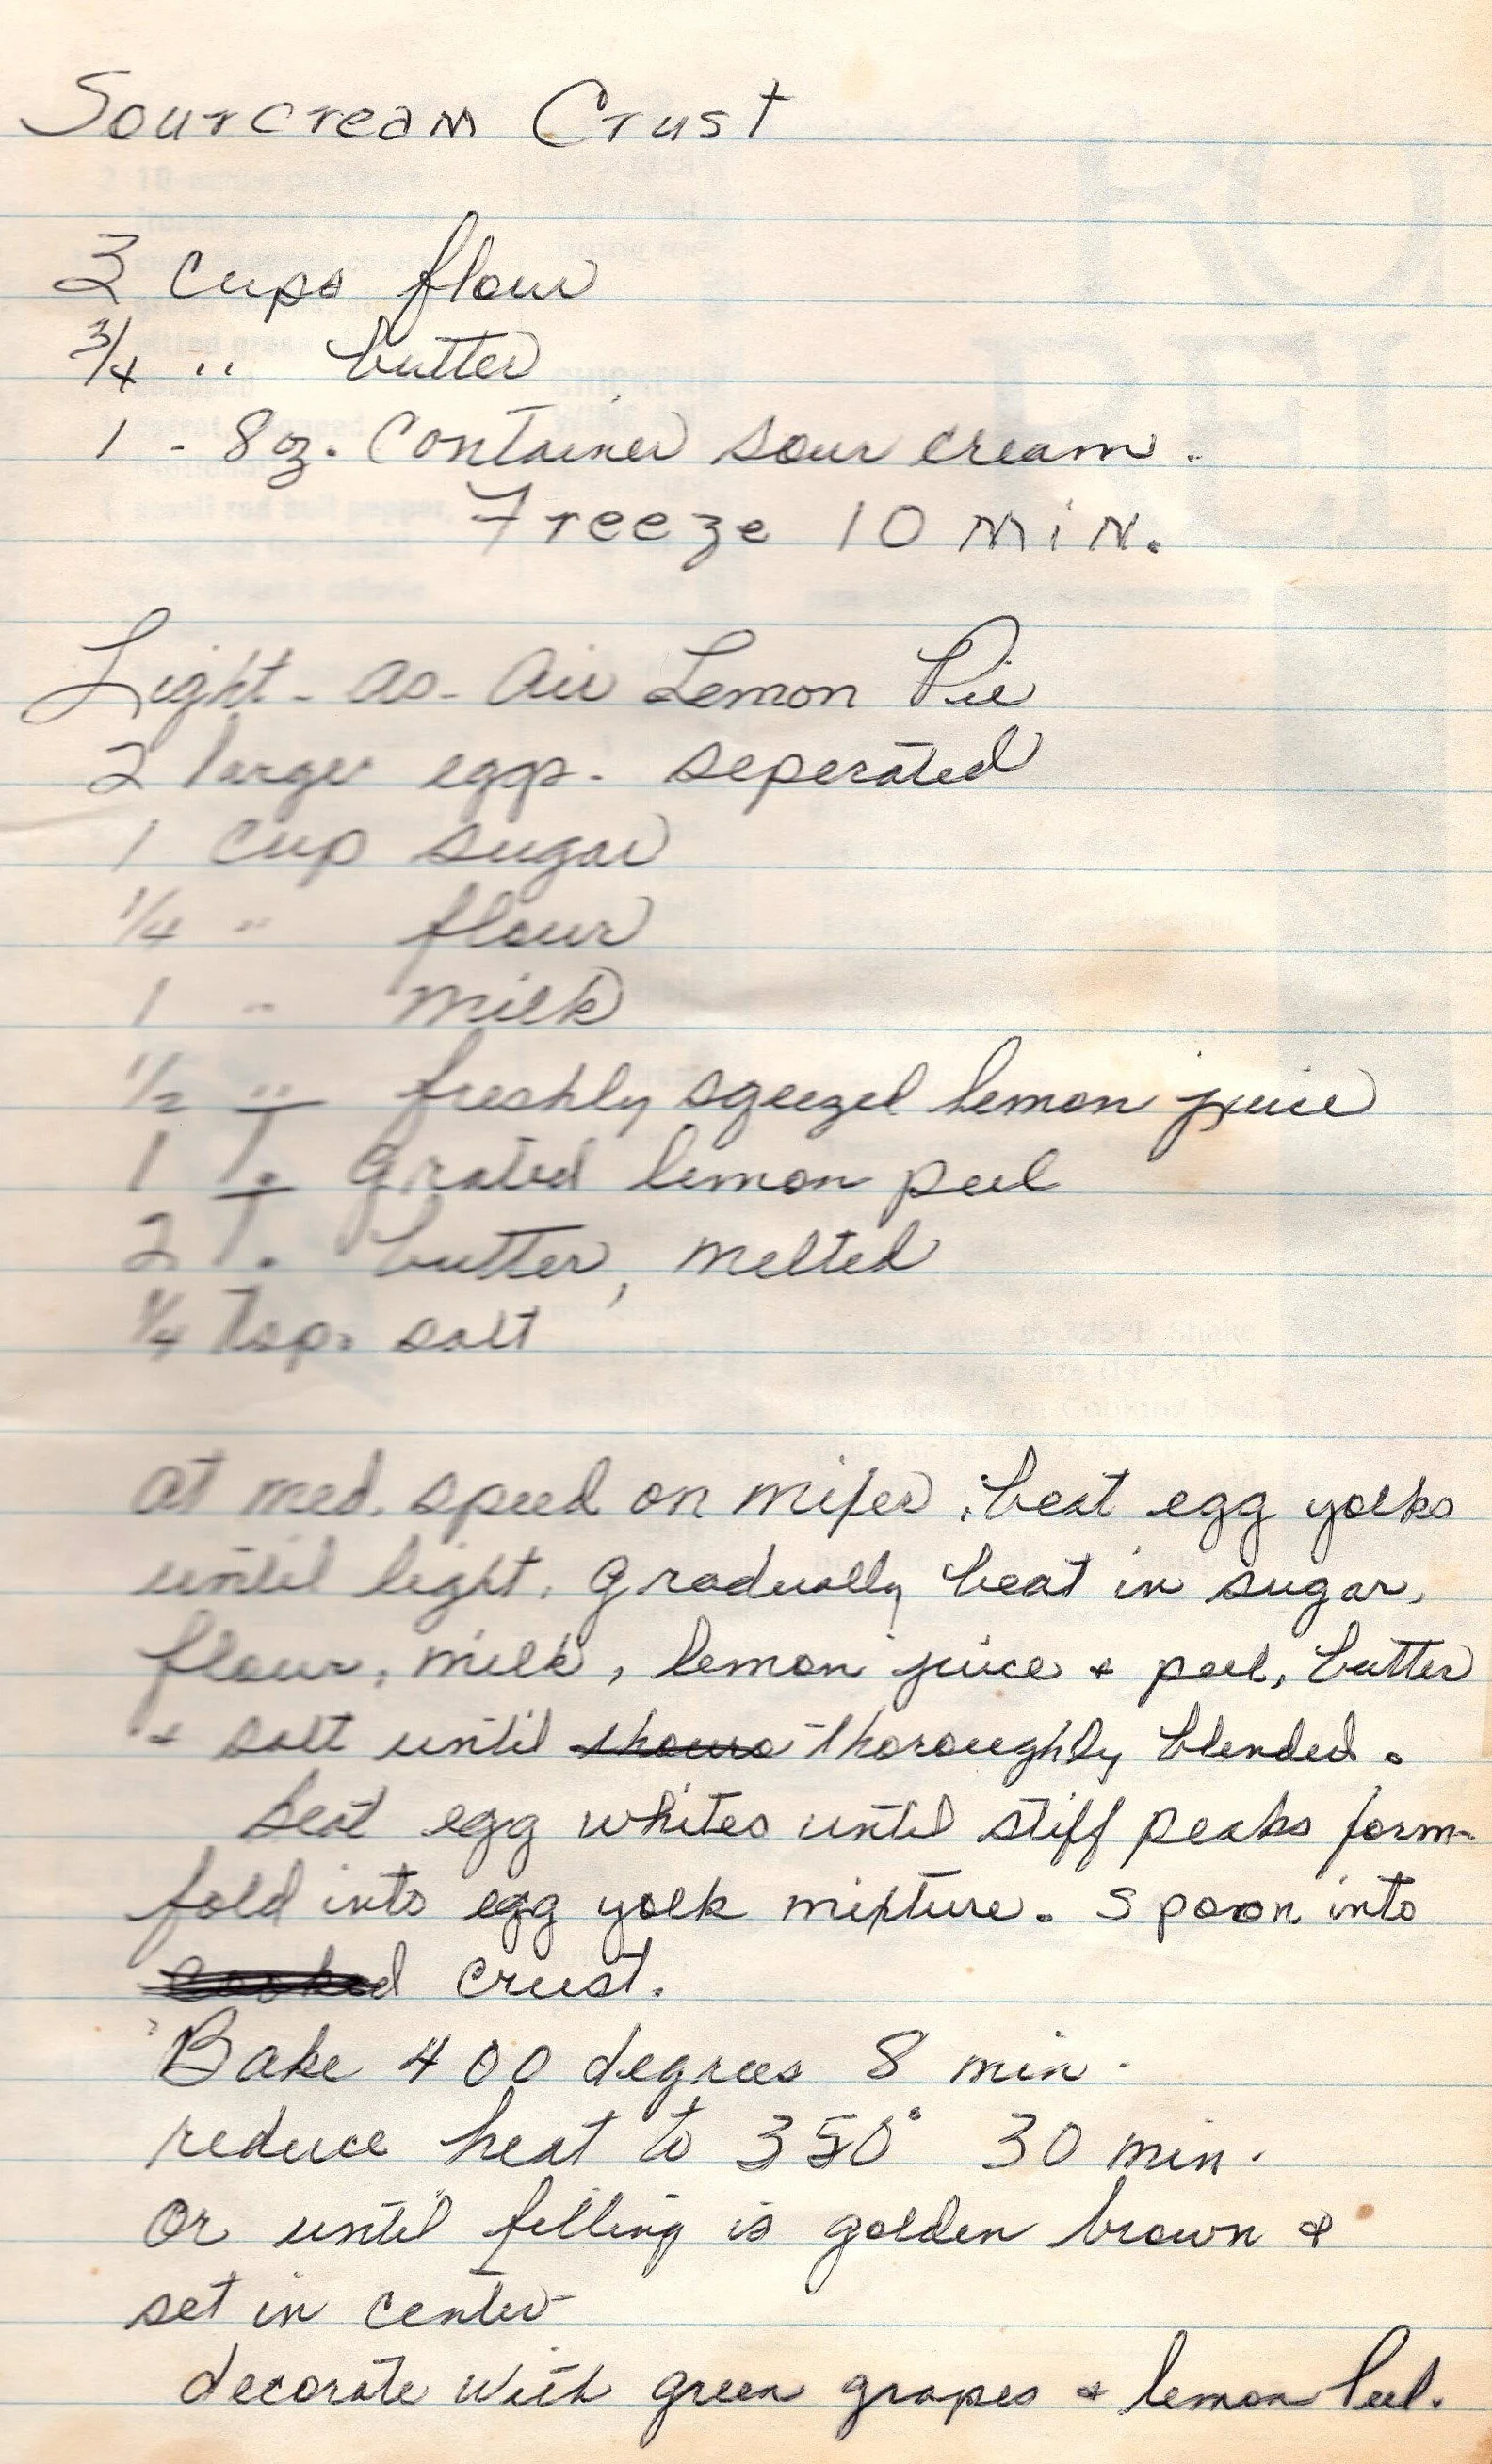 Sourcream Crust
3 cups flour
3/4 " butter
1 - 8 oz. Container sour cream.
Freeze 10 MiN.
Light-as-Air Lemon Pie
2 large eggs. seperated
1 cup sugar
1/4 " flour
1 " milk
1/2 " freshly sqeezed lemon juice
1 T. Grated lemon peel
2 T. butter, melted
1/4 Tsp. salt
at med. speed on mixer, beat egg yolks
until light. Gradually beat in sugar,
flour, milk, lemon juice & peel, butter
& salt until thoroughly blended.
beat egg whites until stiff peaks form-
fold into egg yolk mixture. Spoon into
crust.
Bake 400 degrees 8 min.
reduce heat to 350° 30 min.
Or until filling is golden brown &
set in center
decorate with green grapes & lemon Peel.